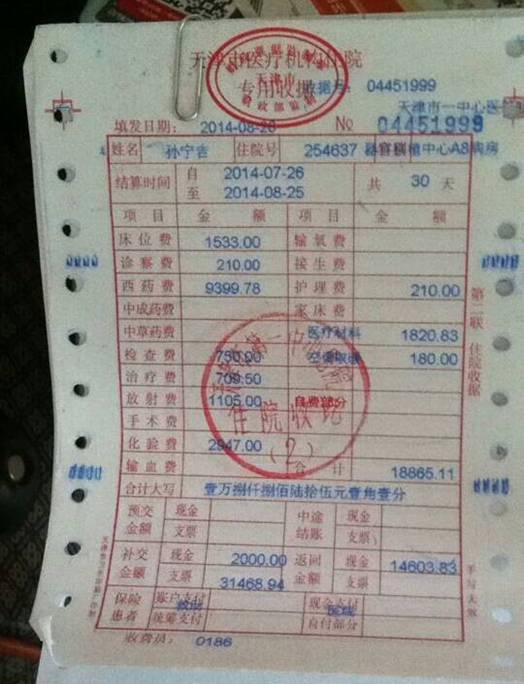 天津市医疗机构住院
专用收据
收据号: 04451999
天津市一中心医
填发日期: 2014-08-26 № 04451999
姓名 孙宁吉 住院号 254637 器官移植中心A8病房
结算时间 自 2014-07-26 至 2014-08-25 共 30 天
项目 金额 项目 金额
床位费 1533.00 输氧费
诊察费 210.00 接生费
西药费 9399.78 护理费 210.00
中成药费 家床费
中草药费 医疗材料 1820.83
检查费 750.00 空调取暖 180.00
治疗费 709.50
放射费 1105.00 自费部分
手术费
化验费 2947.00
输血费 合计 18865.11
合计大写 壹万捌仟捌佰陆拾伍元壹角壹分
预交金额 现金 支票 中途结账 现金 支票
补交金额 现金 2000.00 支票 31468.94 返回金额 现金 支票 14603.83
保险患者 账户支付 统筹支付 现金支付 自付部分
收费员: 0186
第二联 住院收据
手写无效
住院收讫
(2)